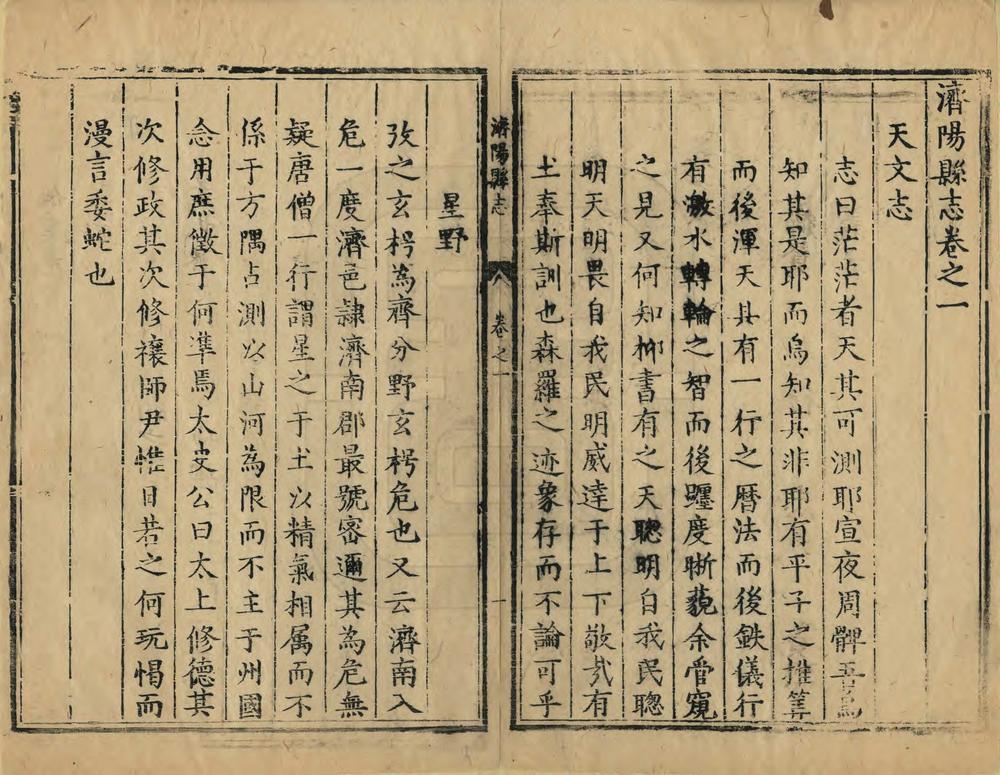 濟陽縣志卷之一
天文志
志曰茫茫者天其可測耶宣夜周髀吾烏
知其是耶而烏知其非耶有平子之推筭
而後渾天具有一行之曆法而後鉄儀行
有激水轉輪之智而後躔度晰藐余管窺
之見又何知抑書有之天聰明自我民聰
明天明畏自我民明威達于上下敬㢤有
土奉斯訓也森羅之迹象存而不論可乎
濟陽縣志
卷之一
一
星野
攷之玄枵為齊分野玄枵危也又云濟南入
危一度濟邑隷濟南郡最號密邇其為危無
疑唐僧一行謂星之于土以精氣相属而不
係于方隅占測以山河為限而不主于州國
念用庶徵于何凖焉太史公曰太上修德其
次修政其次修禳師尹惟日若之何玩愒而
漫言委蛇也